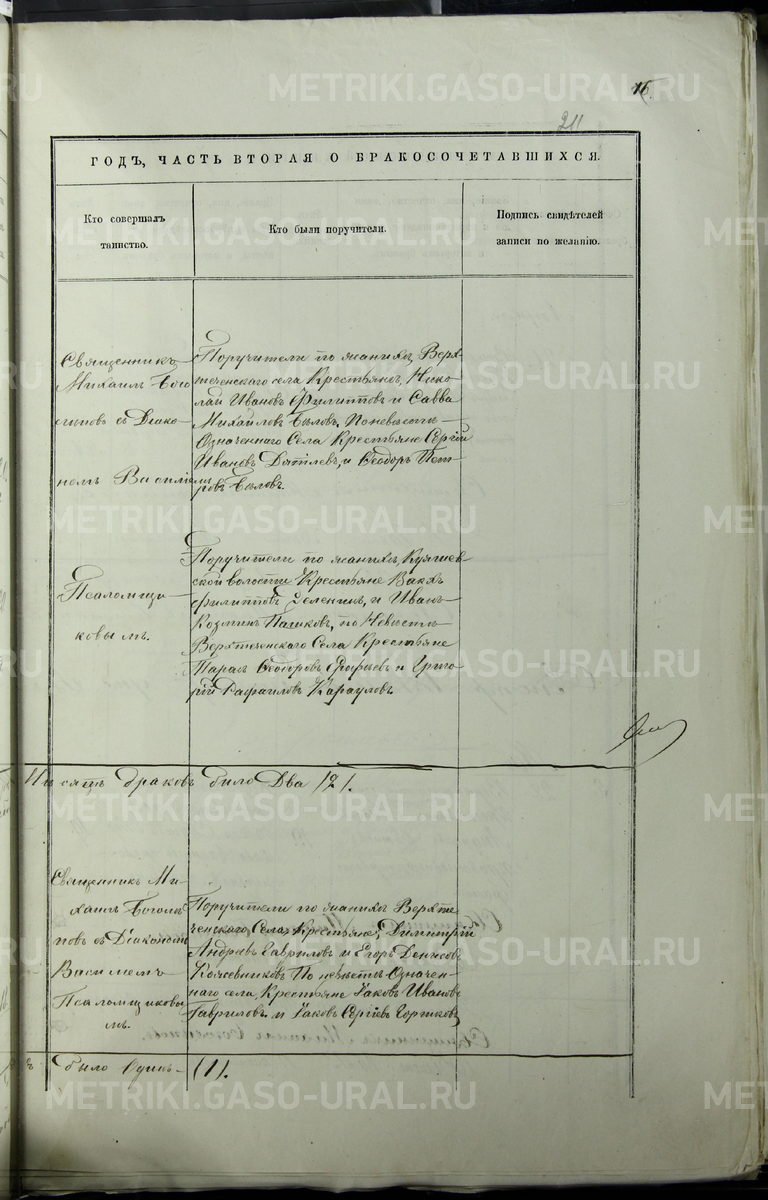 16.
211
ГОДЪ, ЧАСТЬ ВТОРАЯ О БРАКОСОЧЕТАВШИХСЯ.
Кто совершалъ
таинство.
Кто были поручители.
Подпись свидѣтелей
записи по желанію.
Священникъ
Михаилъ Бого
с Діако-
немъ Василіемъ
Псаломщи-
ковымъ.
Поручители по женихѣ, Верх-
теченскаго села Крестьяне, Нико-
лай Ивановъ Филипповъ и Савва
Михайловъ Бѣловъ. По невѣстѣ
Означеннаго Села Крестьяне Сергій
Ивановъ и Ѳеодоръ Пет-
ровъ Бѣловъ.
Поручители по женихѣ,
ской волости Крестьяне
Филипповъ и Иванъ
по Невѣстѣ
Верхтеченскаго Села Крестьяне
Ѳеодоровъ и Григо-
рій Рафаиловъ Карауловъ.
браковъ было Два /2/.
Священникъ Ми-
хаилъ
съ Діакономъ
Василіемъ
Псаломщиковы
мъ.
Поручители по женихѣ Верхте
ченскаго Села Крестьяне, Димитрій
Андреевъ Гавриловъ и Егоръ Денисовъ
Кожевниковъ По невѣстѣ Означен-
наго села, Крестьяне Яковъ Ивановъ
Гавриловъ и Яковъ Сергѣевъ
было Одинъ (1).
METRIKI.GASO-URAL.RU